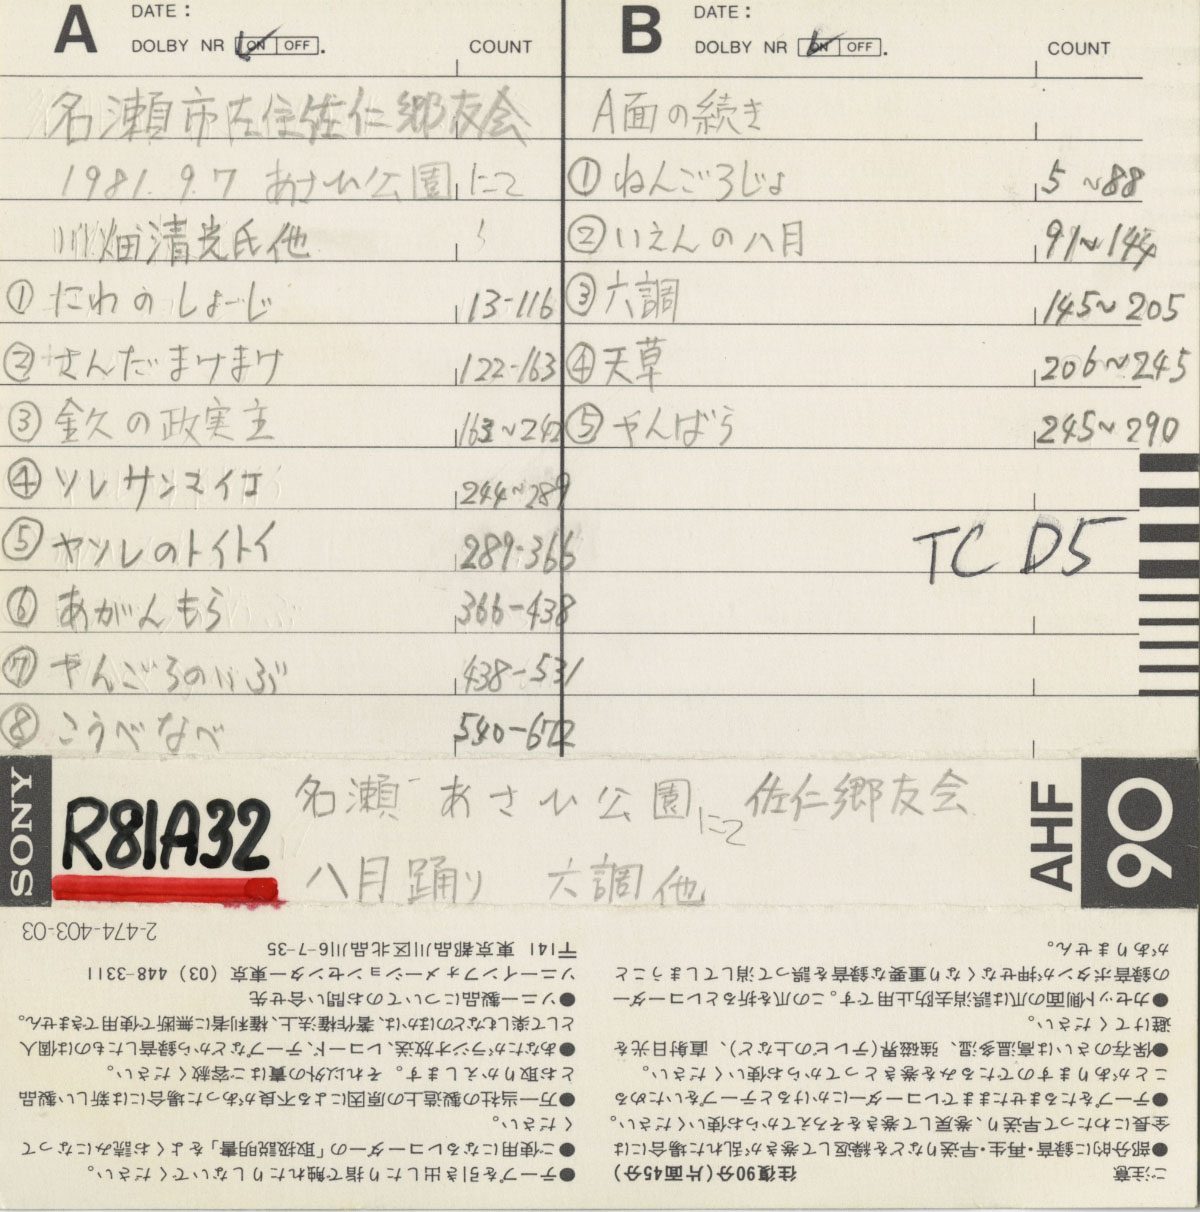 A DATE:
DOLBY NR ON OFF . COUNT
名瀬市在住佐仁郷友会
1981.9.7 あさひ公園にて
川畑清光氏他
① にわのしょーじ 13-116
② さんだまけまけ 122-163
③ 金久の政実主 163~242
④ ソレサンマイエ 244~289
⑤ ヤソレのトイトイ 289-366
⑥ あがんもら 366-438
⑦ やんごろのいぶ 438-531
⑧ こうべなべ 540-672
B DATE:
DOLBY NR ON OFF . COUNT
A面の続き
① ねんごろじょ 5~88
② いえんの八月 91~144
③ 六調 145~205
④ 天草 206~245
⑤ やんばら 245~290
TC D5
SONY
R81A32
名瀬 あさひ公園にて 佐仁郷友会
八月踊り 六調他
AHF 90
ご注意 往復90分(片面45分)
●部分的に録音・再生・早送りなどを繰返して巻きが乱れた場合には
全長にわたって早送り、巻戻して巻きをそろえてからお使いください。
●テープをたるませたままでレコーダーにかけるとテープをいためる
ことがありますのでたるみを巻きとってからお使いください。
●保存のさいは高温多湿、強磁界(テレビの上など)、直射日光を
避けてください。
●カセット側面の爪は誤消去防止用です。この爪を折るとレコーダー
の録音ボタンが押せなくなり重要な録音を誤って消してしまうこと
がありません。
●テープを引き出したり指で触れたりしないでください。
●ご使用になるレコーダーの「取扱説明書」をよくお読みになって
ください。
●万一当社の製造上の原因による不良があった場合には新しい製品
とお取りかえします。それ以外の責はご容赦ください。
●あなたがラジオ放送、レコード、テープなどから録音したものは個人
として楽しむなどのほかは、著作権法上、権利者に無断で使用できません。
●ソニー製品についてのお問い合せ先
ソニーインフォメーションセンター東京 (03) 448-3311
〒141 東京都品川区北品川6-7-35
2-474-403-03